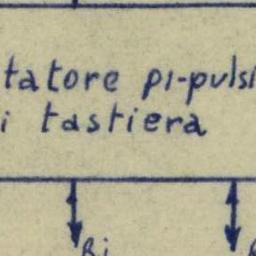 tatore pi-pulsi
i tastiera
Ri